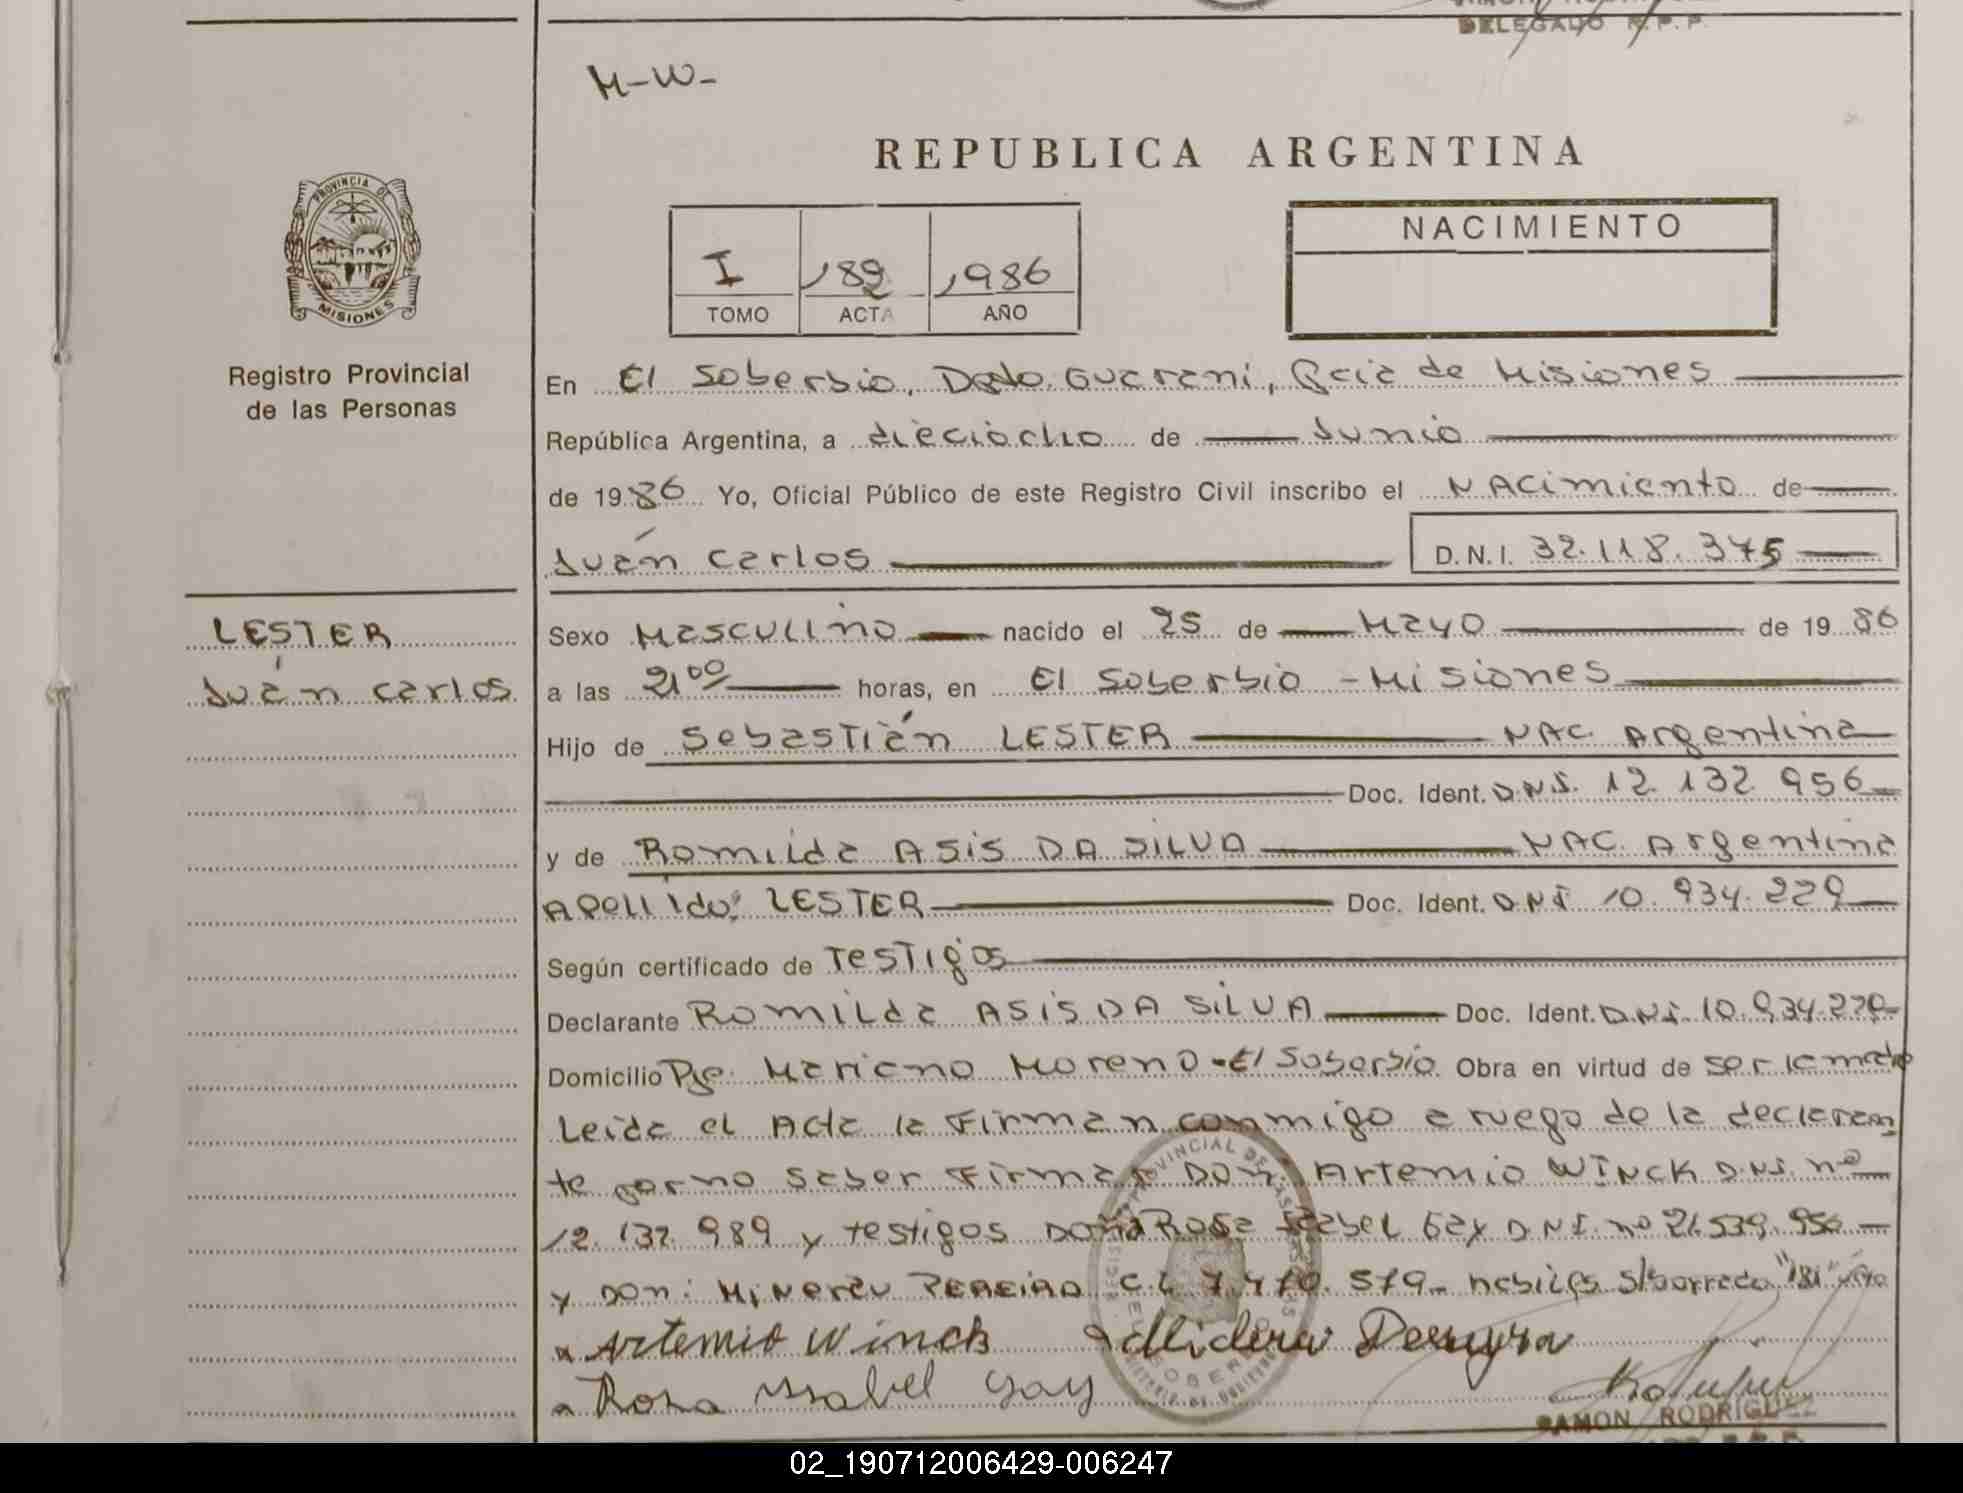 DELEGADO R.P.P.
M-W-
REPUBLICA ARGENTINA
PROVINCIA DE
MISIONES
NACIMIENTO
I 189 1986
TOMO ACTA AÑO
Registro Provincial
de las Personas
En El Soberbio, Dpdo. Guarani, Pcia de Misiones
República Argentina, a dieciocho de Junio
de 1986 Yo, Oficial Público de este Registro Civil inscribo el NACimiento de
Juán Carlos D.N.I. 32.118.375
LESTER
Juán Carlos.
Sexo Masculino nacido el 25 de Mayo de 1986
a las 21⁰⁰ horas, en El Soberbio - Misiones
Hijo de Sebastián LESTER NAC. Argentina
Doc. Ident. D.N.I. 12.132.956
y de Romilda ASIS DA SILVA NAC. Argentina
Apellido: LESTER Doc. Ident. D.N.I. 10.934.229
Según certificado de Testigos
Declarante Romilda ASIS DA SILVA Doc. Ident. D.N.I. 10.934.229
Domicilio Pje. Mariano Moreno - El Soberbio Obra en virtud de ser la madre
Leida el Acta la Firman conmigo a ruego de la declaran
te por no saber Firmar Don: Artemio WINCK D.N.I. nº
12.132.989 y testigos Doña Rosa Isabel Gay D.N.I. nº 21.539.956
y Don: Minervu PEREIRA C.I. 7.470.579- habiles s/borrado "181"
Artemio Winck
Rosa Issabel Gay
RAMON RODRIGUEZ
02_190712006429-006247